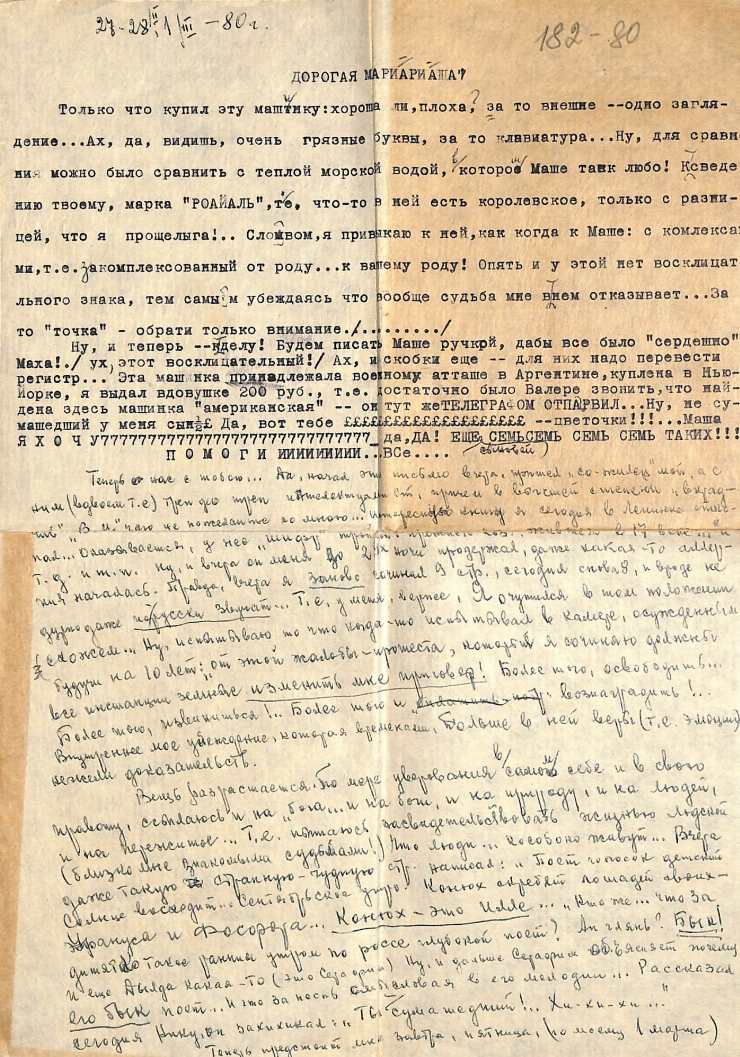 27-28/II, 1/III -80г.
182-80
ДОРОГАЯ МАРИАРИАША!
Только что купил эту машинку:хороша ли,плоха, за то внешне --одно загля-
дение...Ах, да, видишь, очень грязные буквы, за то клавиатура...Ну, для сравне
ния можно было сравнить с теплой морской водой, в которой Маше так любо! К сведе
нию твоему, марка "РОАЙАЛЬ",т.е. что-то в ней есть королевское, только с разни-
цей, что я прощелыга!.. Словом,я привыкаю к ней,как когда к Маше: с комлекса
ми,т.е.закомплексованный от роду...к вашему роду! Опять и у этой нет восклицат
льного знака, тем самым убеждаясь что вообще судьба мне в нем отказывает...За
то "точка" - обрати только внимание./........./
Ну, и теперь --к делу! Будем писать Маше ручкой, дабы все было "сердешно"
Маха!./ ух,этот восклицательный!/ Ах, и скобки еще -- для них надо перевести
регистр... Эта машинка принадлежала военному атташе в Аргентине,куплена в Нью-
Йорке, я выдал вдовушке 200 руб., т.е. достаточно было Валере звонить,что най-
дена здесь машинка "американская" -- он тут жеТЕЛЕГРАФОМ ОТПАРВИЛ...Ну, не су-
машедший у меня сын½£ Да, вот тебе £££££££££££££££££££ --цветочки!!!...Маша
Я ХОЧУ7777777777777777777777777777777777 да,ДА! ЕЩЕ СЕМЬСЕМЬ СЕМЬ СЕМЬ ТАКИХ!!!
(сыновей)
П О М О Г И ИИИИИИИ...ВСе....
Теперь о нас с тобою... Да, начал это письмо вчера, пришел "со-жилец" мой, а с
ним (вдвоем т.е)
"В.и." чаю не пожелав со мною... интересную книгу я сегодня в Ленинке
Оказывается, у нее
т.д. и т.п. Ну, и вчера он меня до 2ух ночи продержал, даже какая-то аллер-
гия началась. Правда, вчера я заново сочинил 9 стр., сегодня сновая, и вроде не
дурно даже по русски звучит... Т.е. у меня, вернее, я очутился в том положении
схожем... Ну, испытываю то что когда-то испытывал в камере, осужденным
будучи на 10 лет: от этой жалобы-протеста, который я сочиняю должны
все инстанции земные изменить мне приговор! Более того, освободить...
Более того, извиниться!.. Более того и вознаградить!..
Внутреннее мое убеждение, которая временами, больше в ней веры (т.е. эмоции)
нежели доказательств.
Вещь разрастается. По мере уверования в самом себе и в свою
правоту, ссылаюсь и на бога... и на быт, и на природу, и на людей,
и на пережитое... Т.е. пытаюсь засвидетельствовать жизнью людской
(близко мне знакомыми судьбами!) Кто люди... особоно живут... Вчера
даже такую странную-чудную стр. написал: "Поет голосок детский
Солнце восходит... Сентябрьское утро. Конюх скребет лошадей своих-
Урануса и Фосфора... Конюх-это Илле... "Кто же... что за
дитято такое ранним утром по росе глубокой поет? Ан глянь? Бык!
и еще дылда какая-то (это Серафим) Ну, и дальше Серафим объясняет почему
его бык поет... И что за песнь в его мелодии... Рассказал
сегодня Нику, он захихикал: "Ты сумашедший!... Хи-хи-хи..."
Теперь предстоит мне завтра, пятница, (по моему 1 марта)